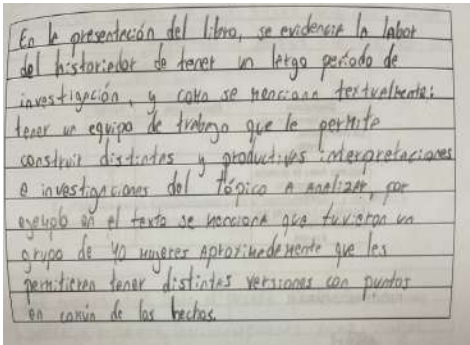 En la presentación del libro, se evidencia la labor
del historiador de tener un largo periodo de
investigación, y como se menciona textualmente:
tener un equipo de trabajo que le permite
construir distintas y productivas interpretaciones
e investigaciones del tópico a analizar, por
ejemplo en el texto se menciona que tuvieron un
grupo de 40 mujeres aproximadamente que les
permitieron tener distintas versiones con puntos
en común de los hechos.